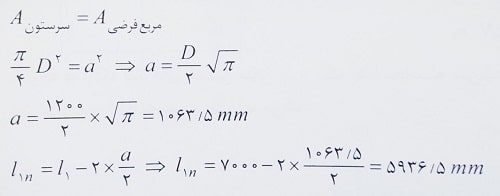 A سرستون = A مربع فرضی
π/۴ D² = a² ⇒ a = D/۲ √π
a = ۱۲۰۰/۲ × √π = ۱۰۶۳/۵ mm
l₁ₙ = l₁ − ۲ × a/۲ ⇒ l₁ₙ = ۷۰۰۰ − ۲ × ۱۰۶۳/۵/۲ = ۵۹۳۶/۵ mm